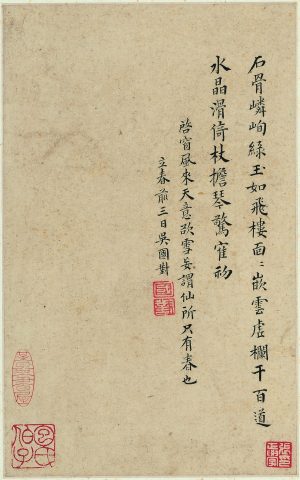 石骨嶙峋綠玉如飛樓面〻嵌雲虛欄干百道
水晶滑倚杖擔琴驚寉初
啓窗風來天意欲雪妄謂仙所只有春也
立春前三日吳國對
國對